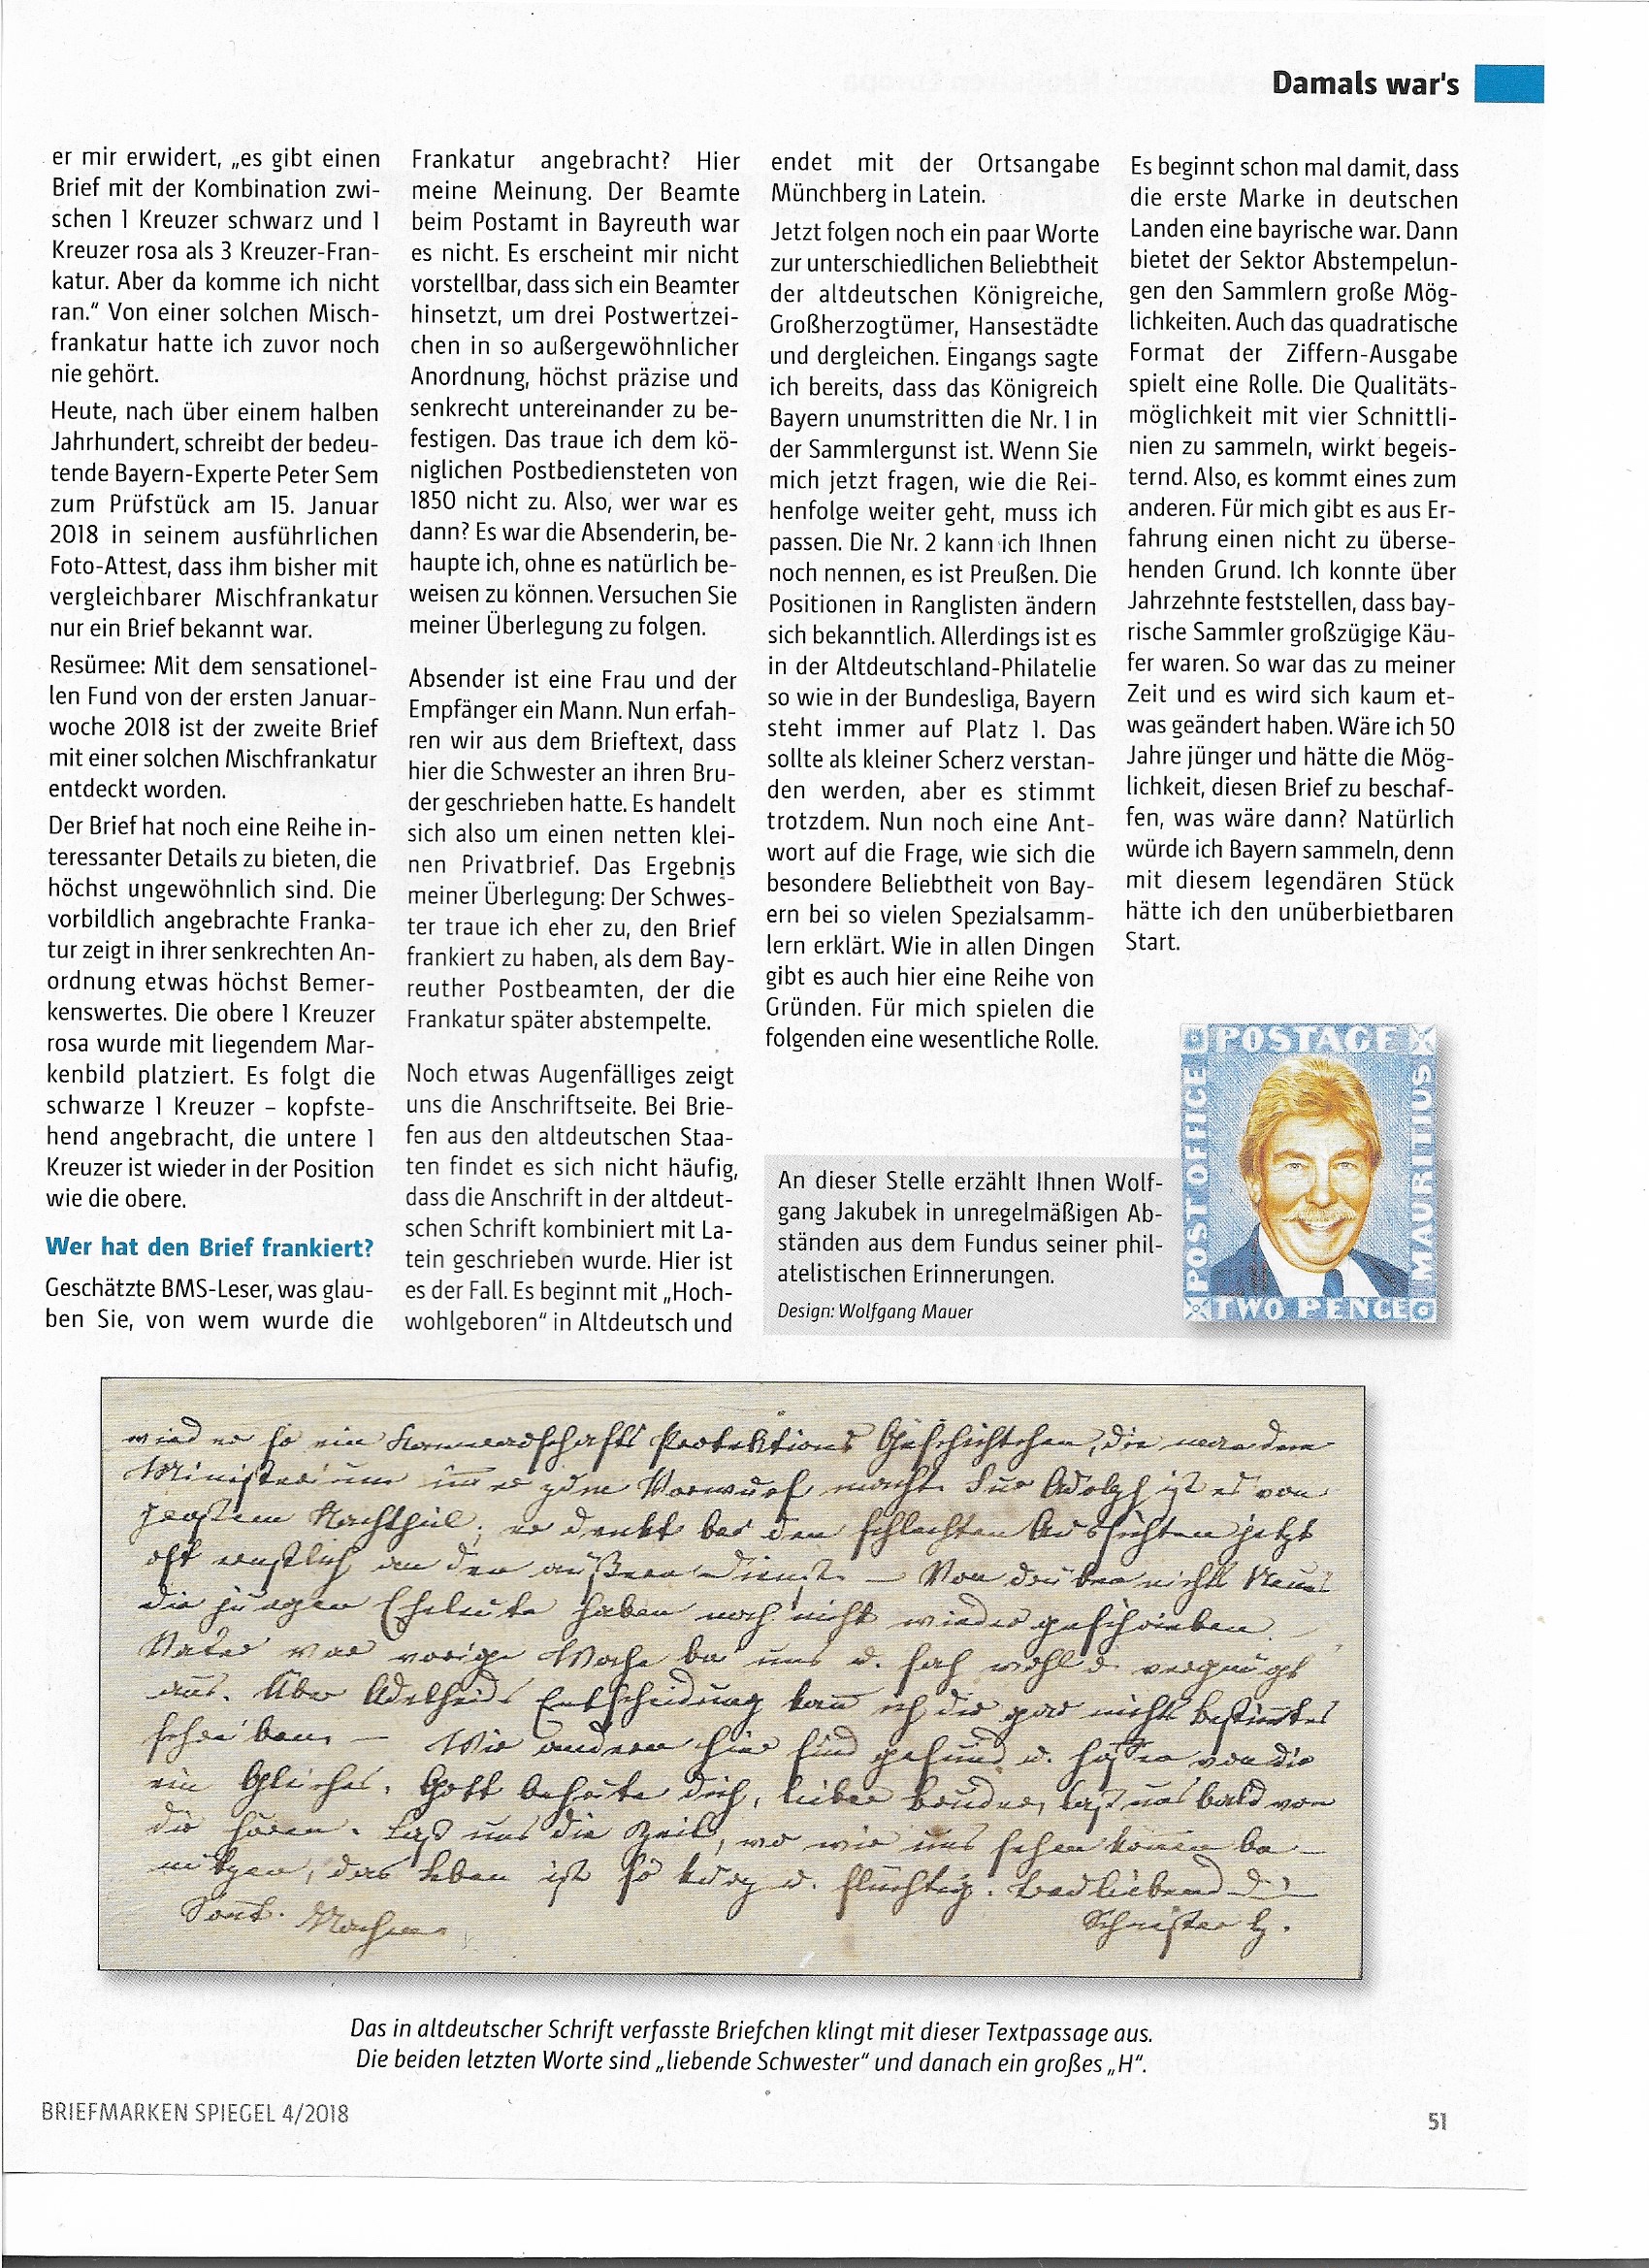 Damals war's
er mir erwidert, „es gibt einen
Brief mit der Kombination zwi-
schen 1 Kreuzer schwarz und 1
Kreuzer rosa als 3 Kreuzer-Fran-
katur. Aber da komme ich nicht
ran.“ Von einer solchen Misch-
frankatur hatte ich zuvor noch
nie gehört.
Heute, nach über einem halben
Jahrhundert, schreibt der bedeu-
tende Bayern-Experte Peter Sem
zum Prüfstück am 15. Januar
2018 in seinem ausführlichen
Foto-Attest, dass ihm bisher mit
vergleichbarer Mischfrankatur
nur ein Brief bekannt war.
Resümee: Mit dem sensationel-
len Fund von der ersten Januar-
woche 2018 ist der zweite Brief
mit einer solchen Mischfrankatur
entdeckt worden.
Der Brief hat noch eine Reihe in-
teressanter Details zu bieten, die
höchst ungewöhnlich sind. Die
vorbildlich angebrachte Franka-
tur zeigt in ihrer senkrechten An-
ordnung etwas höchst Bemer-
kenswertes. Die obere 1 Kreuzer
rosa wurde mit liegendem Mar-
kenbild platziert. Es folgt die
schwarze 1 Kreuzer – kopfste-
hend angebracht, die untere 1
Kreuzer ist wieder in der Position
wie die obere.
Wer hat den Brief frankiert?
Geschätzte BMS-Leser, was glau-
ben Sie, von wem wurde die
Frankatur angebracht? Hier
meine Meinung. Der Beamte
beim Postamt in Bayreuth war
es nicht. Es erscheint mir nicht
vorstellbar, dass sich ein Beamter
hinsetzt, um drei Postwertzei-
chen in so außergewöhnlicher
Anordnung, höchst präzise und
senkrecht untereinander zu be-
festigen. Das traue ich dem kö-
niglichen Postbediensteten von
1850 nicht zu. Also, wer war es
dann? Es war die Absenderin, be-
haupte ich, ohne es natürlich be-
weisen zu können. Versuchen Sie
meiner Überlegung zu folgen.
Absender ist eine Frau und der
Empfänger ein Mann. Nun erfah-
ren wir aus dem Brieftext, dass
hier die Schwester an ihren Bru-
der geschrieben hatte. Es handelt
sich also um einen netten klei-
nen Privatbrief. Das Ergebnis
meiner Überlegung: Der Schwes-
ter traue ich eher zu, den Brief
frankiert zu haben, als dem Bay-
reuther Postbeamten, der die
Frankatur später abstempelte.
Noch etwas Augenfälliges zeigt
uns die Anschriftseite. Bei Brie-
fen aus den altdeutschen Staa-
ten findet es sich nicht häufig,
dass die Anschrift in der altdeut-
schen Schrift kombiniert mit La-
tein geschrieben wurde. Hier ist
es der Fall. Es beginnt mit „Hoch-
wohlgeboren“ in Altdeutsch und
endet mit der Ortsangabe
Münchberg in Latein.
Jetzt folgen noch ein paar Worte
zur unterschiedlichen Beliebtheit
der altdeutschen Königreiche,
Großherzogtümer, Hansestädte
und dergleichen. Eingangs sagte
ich bereits, dass das Königreich
Bayern unumstritten die Nr. 1 in
der Sammlergunst ist. Wenn Sie
mich jetzt fragen, wie die Rei-
henfolge weiter geht, muss ich
passen. Die Nr. 2 kann ich Ihnen
noch nennen, es ist Preußen. Die
Positionen in Ranglisten ändern
sich bekanntlich. Allerdings ist es
in der Altdeutschland-Philatelie
so wie in der Bundesliga, Bayern
steht immer auf Platz 1. Das
sollte als kleiner Scherz verstan-
den werden, aber es stimmt
trotzdem. Nun noch eine Ant-
wort auf die Frage, wie sich die
besondere Beliebtheit von Bay-
ern bei so vielen Spezialsamm-
lern erklärt. Wie in allen Dingen
gibt es auch hier eine Reihe von
Gründen. Für mich spielen die
folgenden eine wesentliche Rolle.
Es beginnt schon mal damit, dass
die erste Marke in deutschen
Landen eine bayrische war. Dann
bietet der Sektor Abstempelun-
gen den Sammlern große Mög-
lichkeiten. Auch das quadratische
Format der Ziffern-Ausgabe
spielt eine Rolle. Die Qualitäts-
möglichkeit mit vier Schnittli-
nien zu sammeln, wirkt begeis-
ternd. Also, es kommt eines zum
anderen. Für mich gibt es aus Er-
fahrung einen nicht zu überse-
henden Grund. Ich konnte über
Jahrzehnte feststellen, dass bay-
rische Sammler großzügige Käu-
fer waren. So war das zu meiner
Zeit und es wird sich kaum et-
was geändert haben. Wäre ich 50
Jahre jünger und hätte die Mög-
lichkeit, diesen Brief zu beschaf-
fen, was wäre dann? Natürlich
würde ich Bayern sammeln, denn
mit diesem legendären Stück
hätte ich den unüberbietbaren
Start.
An dieser Stelle erzählt Ihnen Wolf-
gang Jakubek in unregelmäßigen Ab-
ständen aus dem Fundus seiner phil-
atelistischen Erinnerungen.
Design: Wolfgang Mauer
POSTAGE
POST OFFICE
MAURITIUS
TWO PENCE
wieder so ein Kameradschafts Protektions Geschichtchen, die man dem
Ministerium immer zum Vorwurf macht. Für Adolph ist es von
großem Nachtheil; er denkt bei den schlechten Aussichten jetzt
oft ernstlich an den äußern Dienst. — Von drüben nichts Neues
die jungen Eheleute haben noch nicht wieder geschrieben.
Vater war vorige Woche bei uns u. sah wohl u. vergnügt
aus. Über Adelheids Entscheidung kann ich dir gar nichts bestimtes
schreiben. — Wir andern hier sind gesund u. hoffen von dir
ein Gleiches. Gott behüte dich, lieber Bruder, laß uns bald von
dir hören. Laß uns die Zeit, wo wir uns sehen können be-
nutzen, das Leben ist so kurz u. flüchtig.
Schwester H.
Das in altdeutscher Schrift verfasste Briefchen klingt mit dieser Textpassage aus.
Die beiden letzten Worte sind „liebende Schwester“ und danach ein großes „H“.
BRIEFMARKEN SPIEGEL 4/2018
51